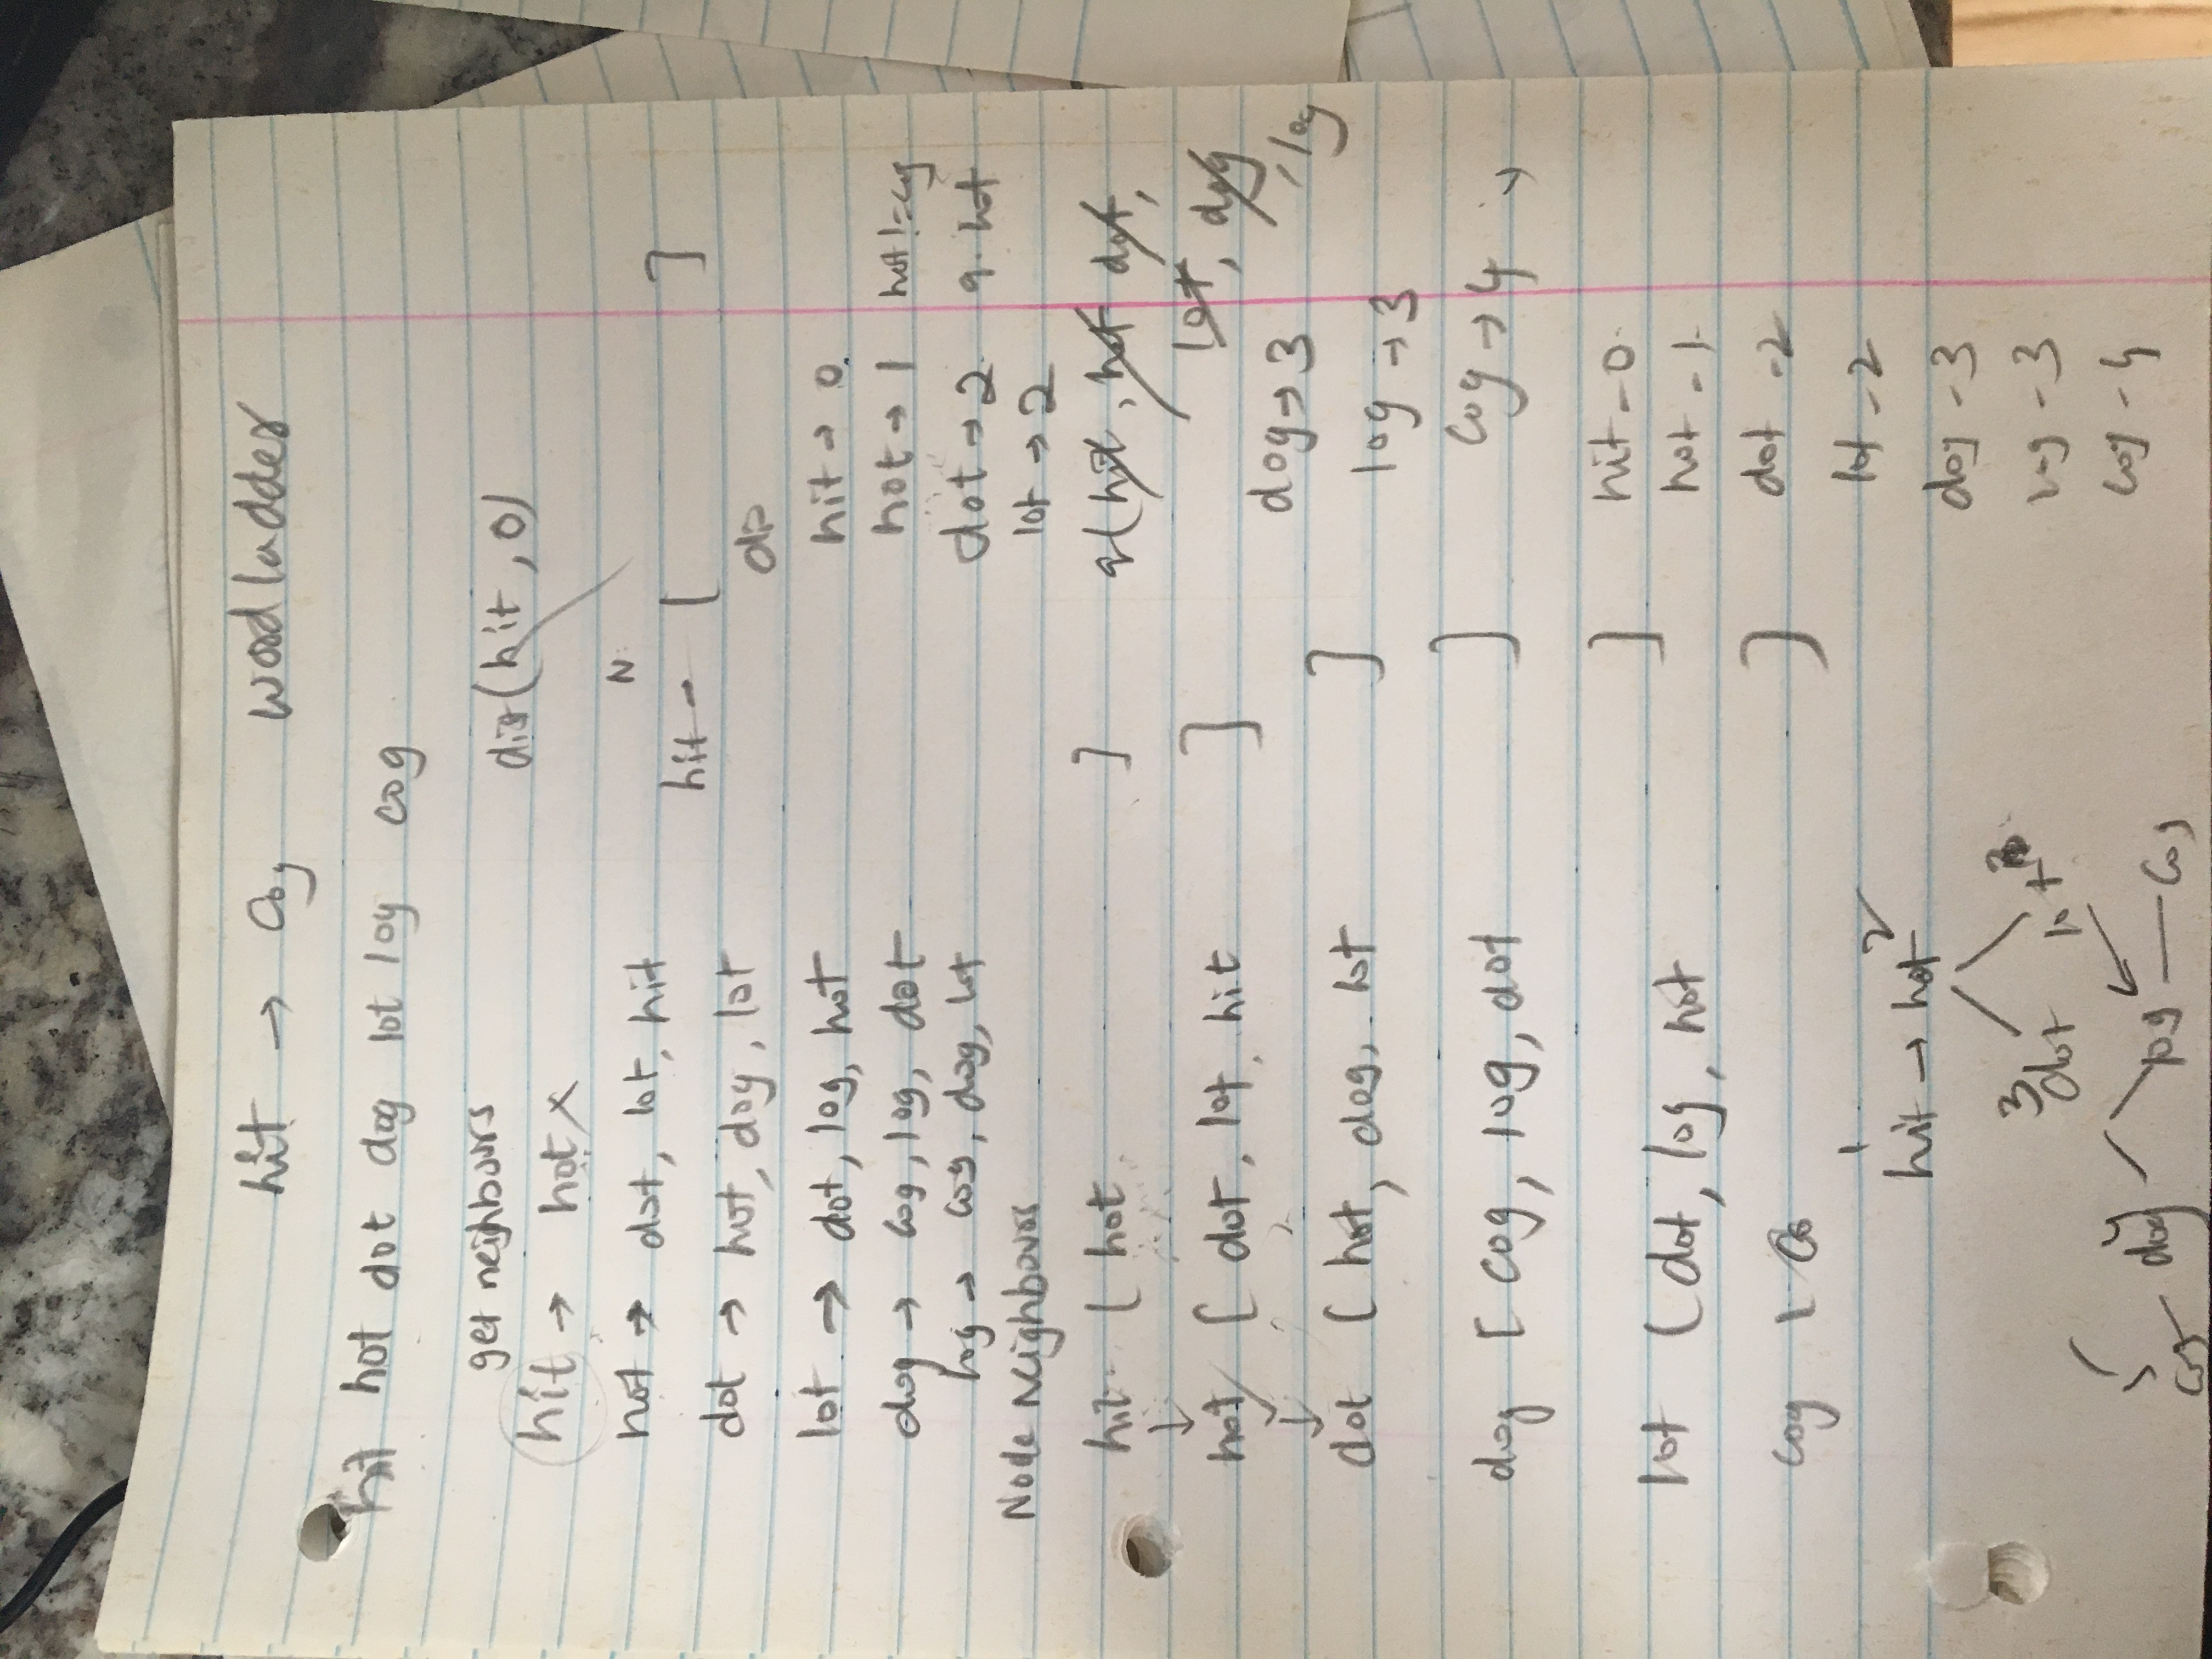 hit → cog word ladder
hit hot dot dog lot log cog
get neighbours
hit → hot ×
hot → dot, lot, hit
dot → hot, dog, lot
lot → dot, log, hot
dog → cog, log, dot
log → cog, dog, lot
Node Neighbours
hit [ hot ]
↓
hot [ dot, lot, hit ]
↓
dot [ hot, dog, lot ]
dog [ cog, log, dot ]
lot [ dot, log, hot ]
cog [ co ]
dis(hit, 0)
N
hit - [ ]
dis
hit → 0
hot → 1 hot != cog
dot → 2 q. hot
lot → 2
q(hit, hot dot,
lot, dog
, log
dog → 3
log → 3
cog → 4 →
hit - 0
hot - 1
dot - 2
lot - 2
dog - 3
log - 3
cog - 4
1 2
hit → hot
3 3
dot lot
4
5
cog dog log — cog